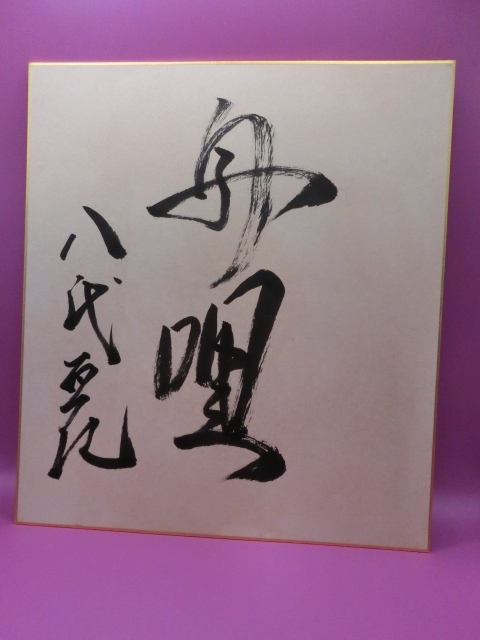 舟唄
八代亜紀